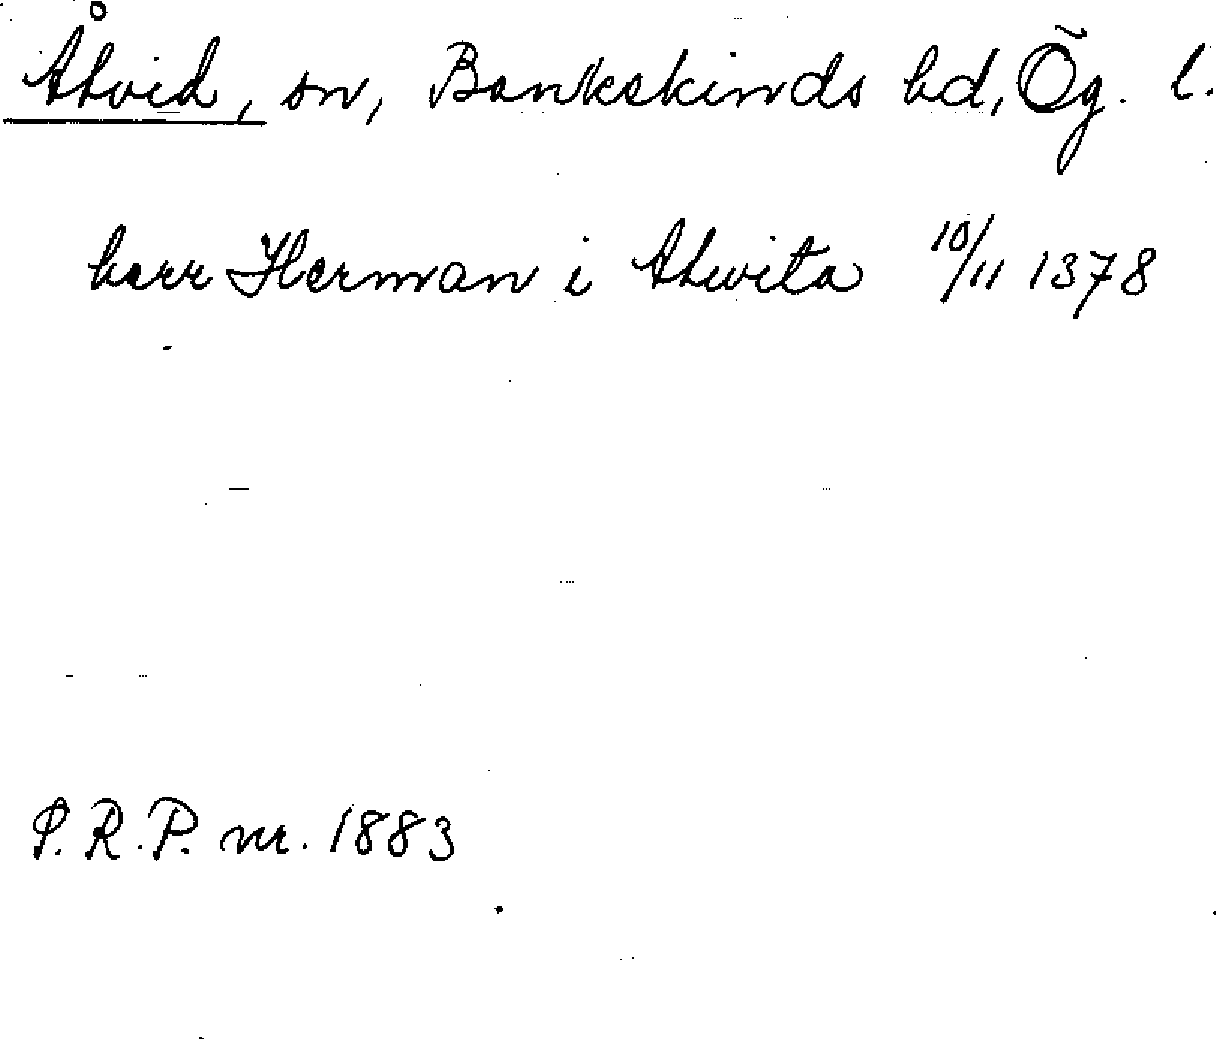 Åtvid, sn, Bankekinds hd, Ög. l.
herr Herman i Atwita 10/11 1378
P.R.P. nr. 1883